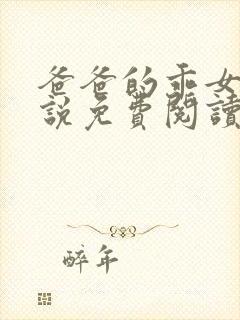 爸爸的乖女
說免費閱讀
醉年